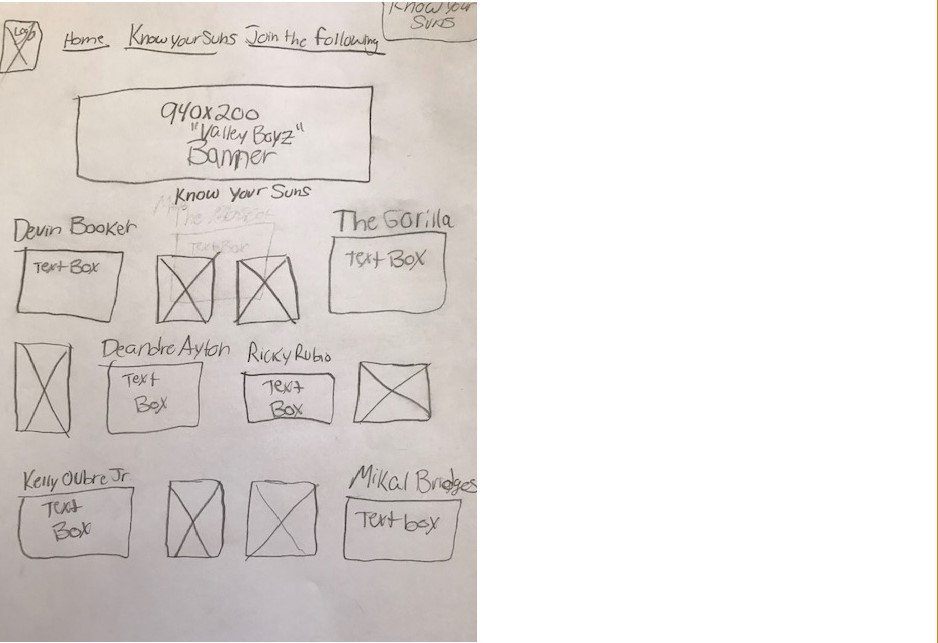 Know your
Suns
Logo
Home Know your Suns Join the following
940x200
"Valley Boyz"
Banner
Know Your Suns
Devin Booker
Text Box
The Gorilla
Text Box
Text Box
Deandre Ayton
Text
Box
Ricky Rubio
Text
Box
Kelly Oubre Jr.
Text
Box
Mikal Bridges
Text box